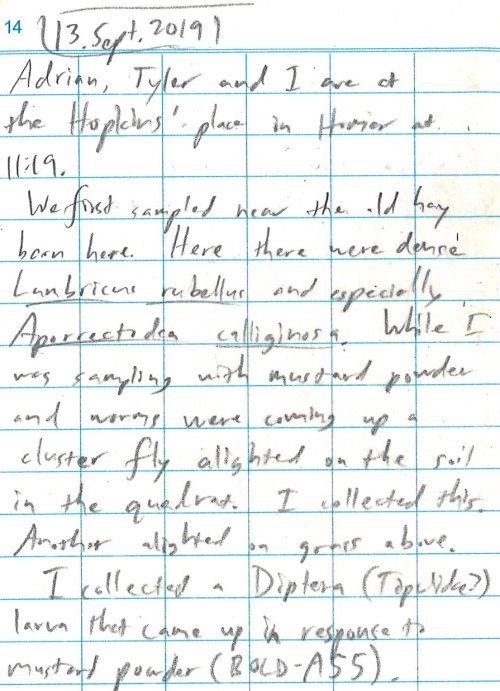 14 (13. Sept. 2019)
Adrian, Tyler and I are at
the Hopkins' place in Homer at
11:19.
We first sampled near the old hay
barn here. Here there were dense
Lumbricus rubellus and especially
Aporrectodea calliginosa. While I
was sampling with mustard powder
and worms were coming up a
cluster fly alighted on the soil
in the quadrat. I collected this.
Another alighted on grass above.
I collected a Diptera (Tipulidae?)
larva that came up in response to
mustard powder (BOLD-A55).